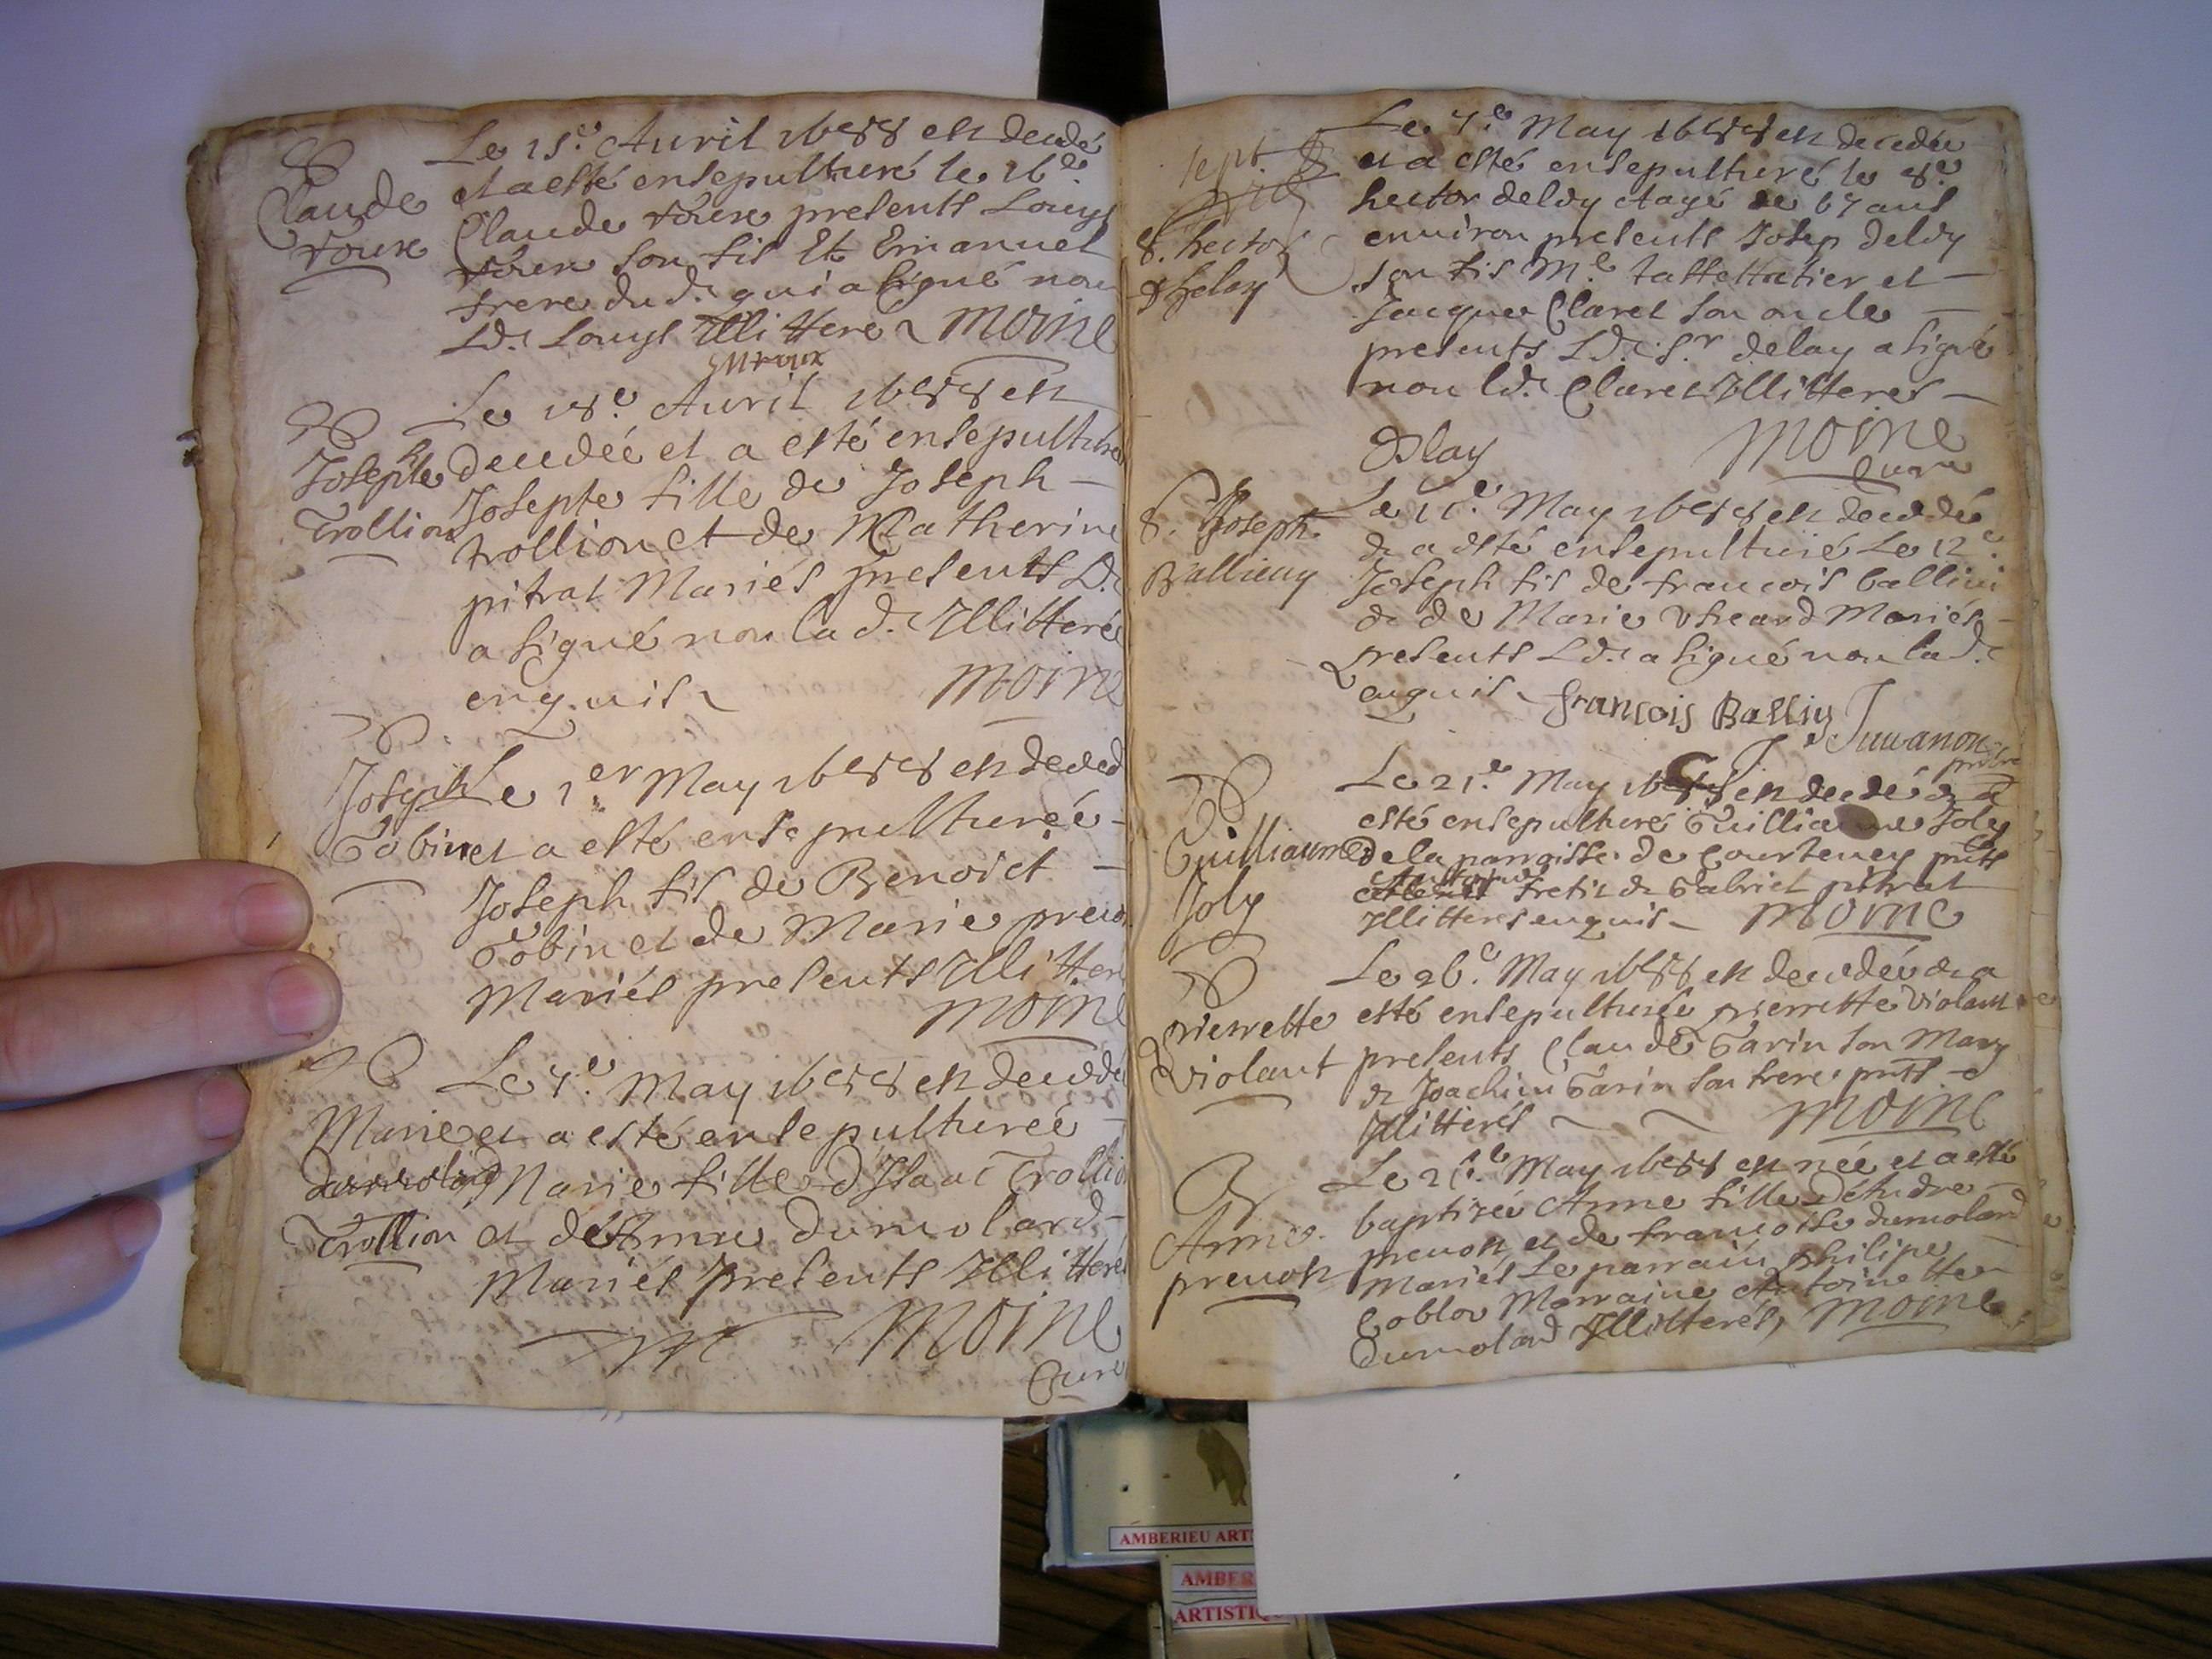 Claude
roux
Le 15.e Auril 1688 est decedé
et a esté ensepulturé le 16.e
Claude roux presents Louys
roux son fis Et Emanuel
frere dud. qui a signé non
Ld. Louys Illittere moine
Josephte
Trollion
Le 18.e Auril 1688 est
decedée et a esté ensepulturée
Josepte fille de Joseph
trollion et de Catherine
pitrat Mariés presents Ld.
a signé non lad. Illitterée
enquis
moine
Joseph
Gobinet
Le 1.er May 1688 est deced
a esté ensepulturée
Joseph fis de Benoict
Gobinet de Marie preuo
Mariés presents Illitter
moine
Marie
Trollion
Le 7.e May 1688 est decedée
et a esté ensepulturée
Marie fille d'Isaac Trollion
et de Anne dumolard
Mariés presents Illitterés
moine
Curé
sept.
S. hector
delay
Le 7.e May 1688 est decedée
et a esté ensepulturé le 8.e
hector delay aagé de 67 ans
enuiron presents Josep delay
son fis M.e et
Jacques Claret son oncle
presents Ld. s.r delay a signé
non ld. Claret Illitteres
Dlay
moine
Curé
S. Joseph
Ballieuy
Le 11.e May 1688 est decedée
& a esté ensepulturé Le 12.e
Joseph fis de francois ballini
& de Marie Mariés
presents Ld. a signé non lad.
enquis françois Balliy Juuanon
Guilliaume
Joly
Le 21.e May 1688 est decedé & a
esté ensepulturé Guilliaume Joly
de la parroisse de Courteney pnts
Antoine fretit & Gabriel pitrat
Illitteres enquis moine
Pierrette
Violant
Le 26.e May 1688 est decedée & a
esté ensepulturée pierrette Violant
presents Claude Garin son Mary
& Joachim Garin son frere pnts
Illitterés moine
Anne
preuost
Le May 1688 est née et a esté
baptizée Anne fille d'Andre
preuost et de francoise dumolard
Mariés Le parrain philipe
Goblot Marraine Antoinette
dumolard Illitterés, moine
AMBERIEU ART
AMBER
ARTISTIQ